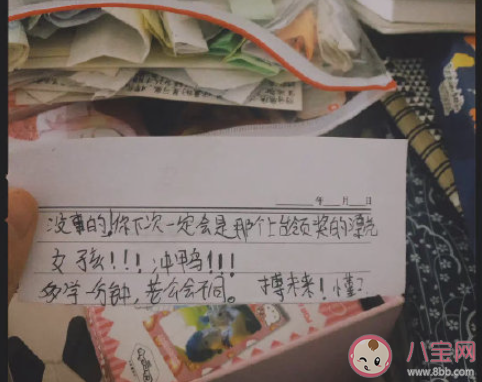 年 月 日
没事的!你下次一定会是那个上台领奖的漂亮
女孩!!!冲鸭!!!
多学一分钟,老公会不同。 搏未来!懂?
八宝网
www.8bb.com